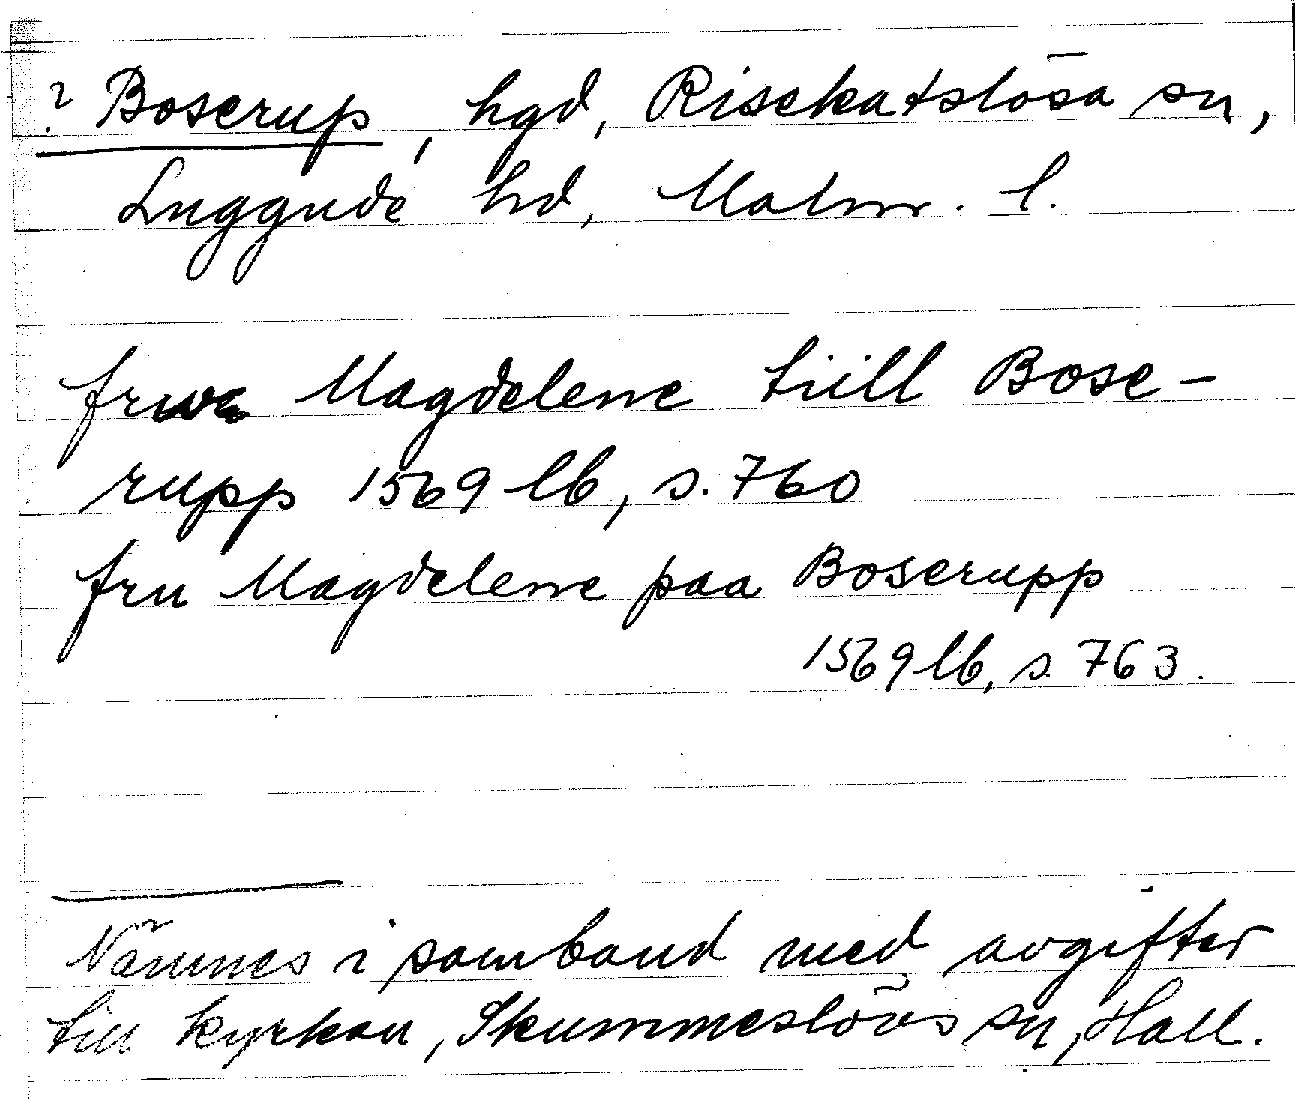 ? Boserup, hgd, Risekatslösa sn,
Luggude hd, Malm. l.
frwe Magdelene tiill Bose-
rupp 1569 lb, s. 760
fru Magdelene paa Boserupp
1569 lb, s. 763.
Nämnes i samband med avgifter
till kyrkan, Skummeslövs sn, Hall.